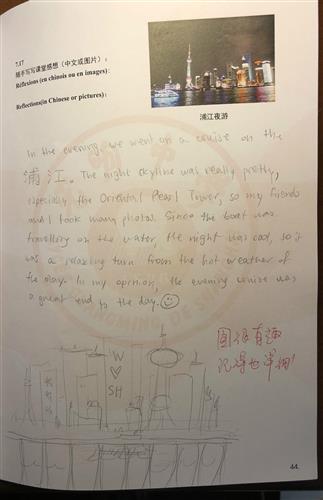 7.17
随手写写课堂感想（中文或图片）：
Réflexions (en chinois ou en images) :
Reflections(in Chinese or pictures):
浦江夜游
In the evening, we went on a cruise on the
浦江. The night skyline was really pretty,
especially the Oriental Pearl Tower, so my friends
and I took many photos. Since the boat was
travelling on the water, the night was cool, so it
was a relaxing turn from the hot weather of
the day. In my opinion, the evening cruise was
a great end to the day.
图很有趣
记得也详细!
W
♡
SH
44